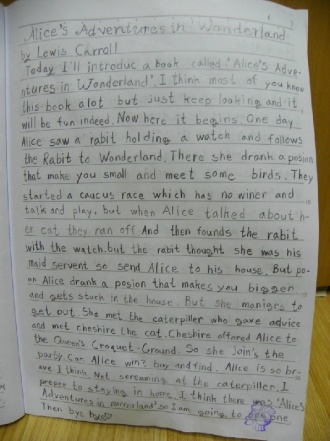 Alice's Adventures in Wonderland
by Lewis Carroll
Today I'll introduc a book called 'Alice's Adve-
ntures in Wonderland'. I think most of you know
this book alot but just keep looking and it
will be fun indeed. Now here it begins. One day
Alice saw a rabit holding a watch and follows
the Rabit to Wonderland. There she drank a posion
that make you small and meet some birds. They
started a caucus race which has no winer and
talk and play, but when Alice talked about h-
er cat they ran off. And then founds the rabbit
with the watch. but the rabbit thought she was his
maid servent so send Alice to his house. But po-
on Alice drank a posion that makes you bigger
and gets stuck in the house. But she maniges to
get out. She met the caterpiller who gave advice
and met cheshire the cat. Cheshire offered Alice to
the Queen's Croquet-Ground. So she join's the
party. Can Alice win? buy and find. Alice is so br-
ave I think. Not screaming at the caterpiller. I
preper to staying in home. I think there was 'Alice's
Adventures in mirrorland' so I am going to one
Then bye bye